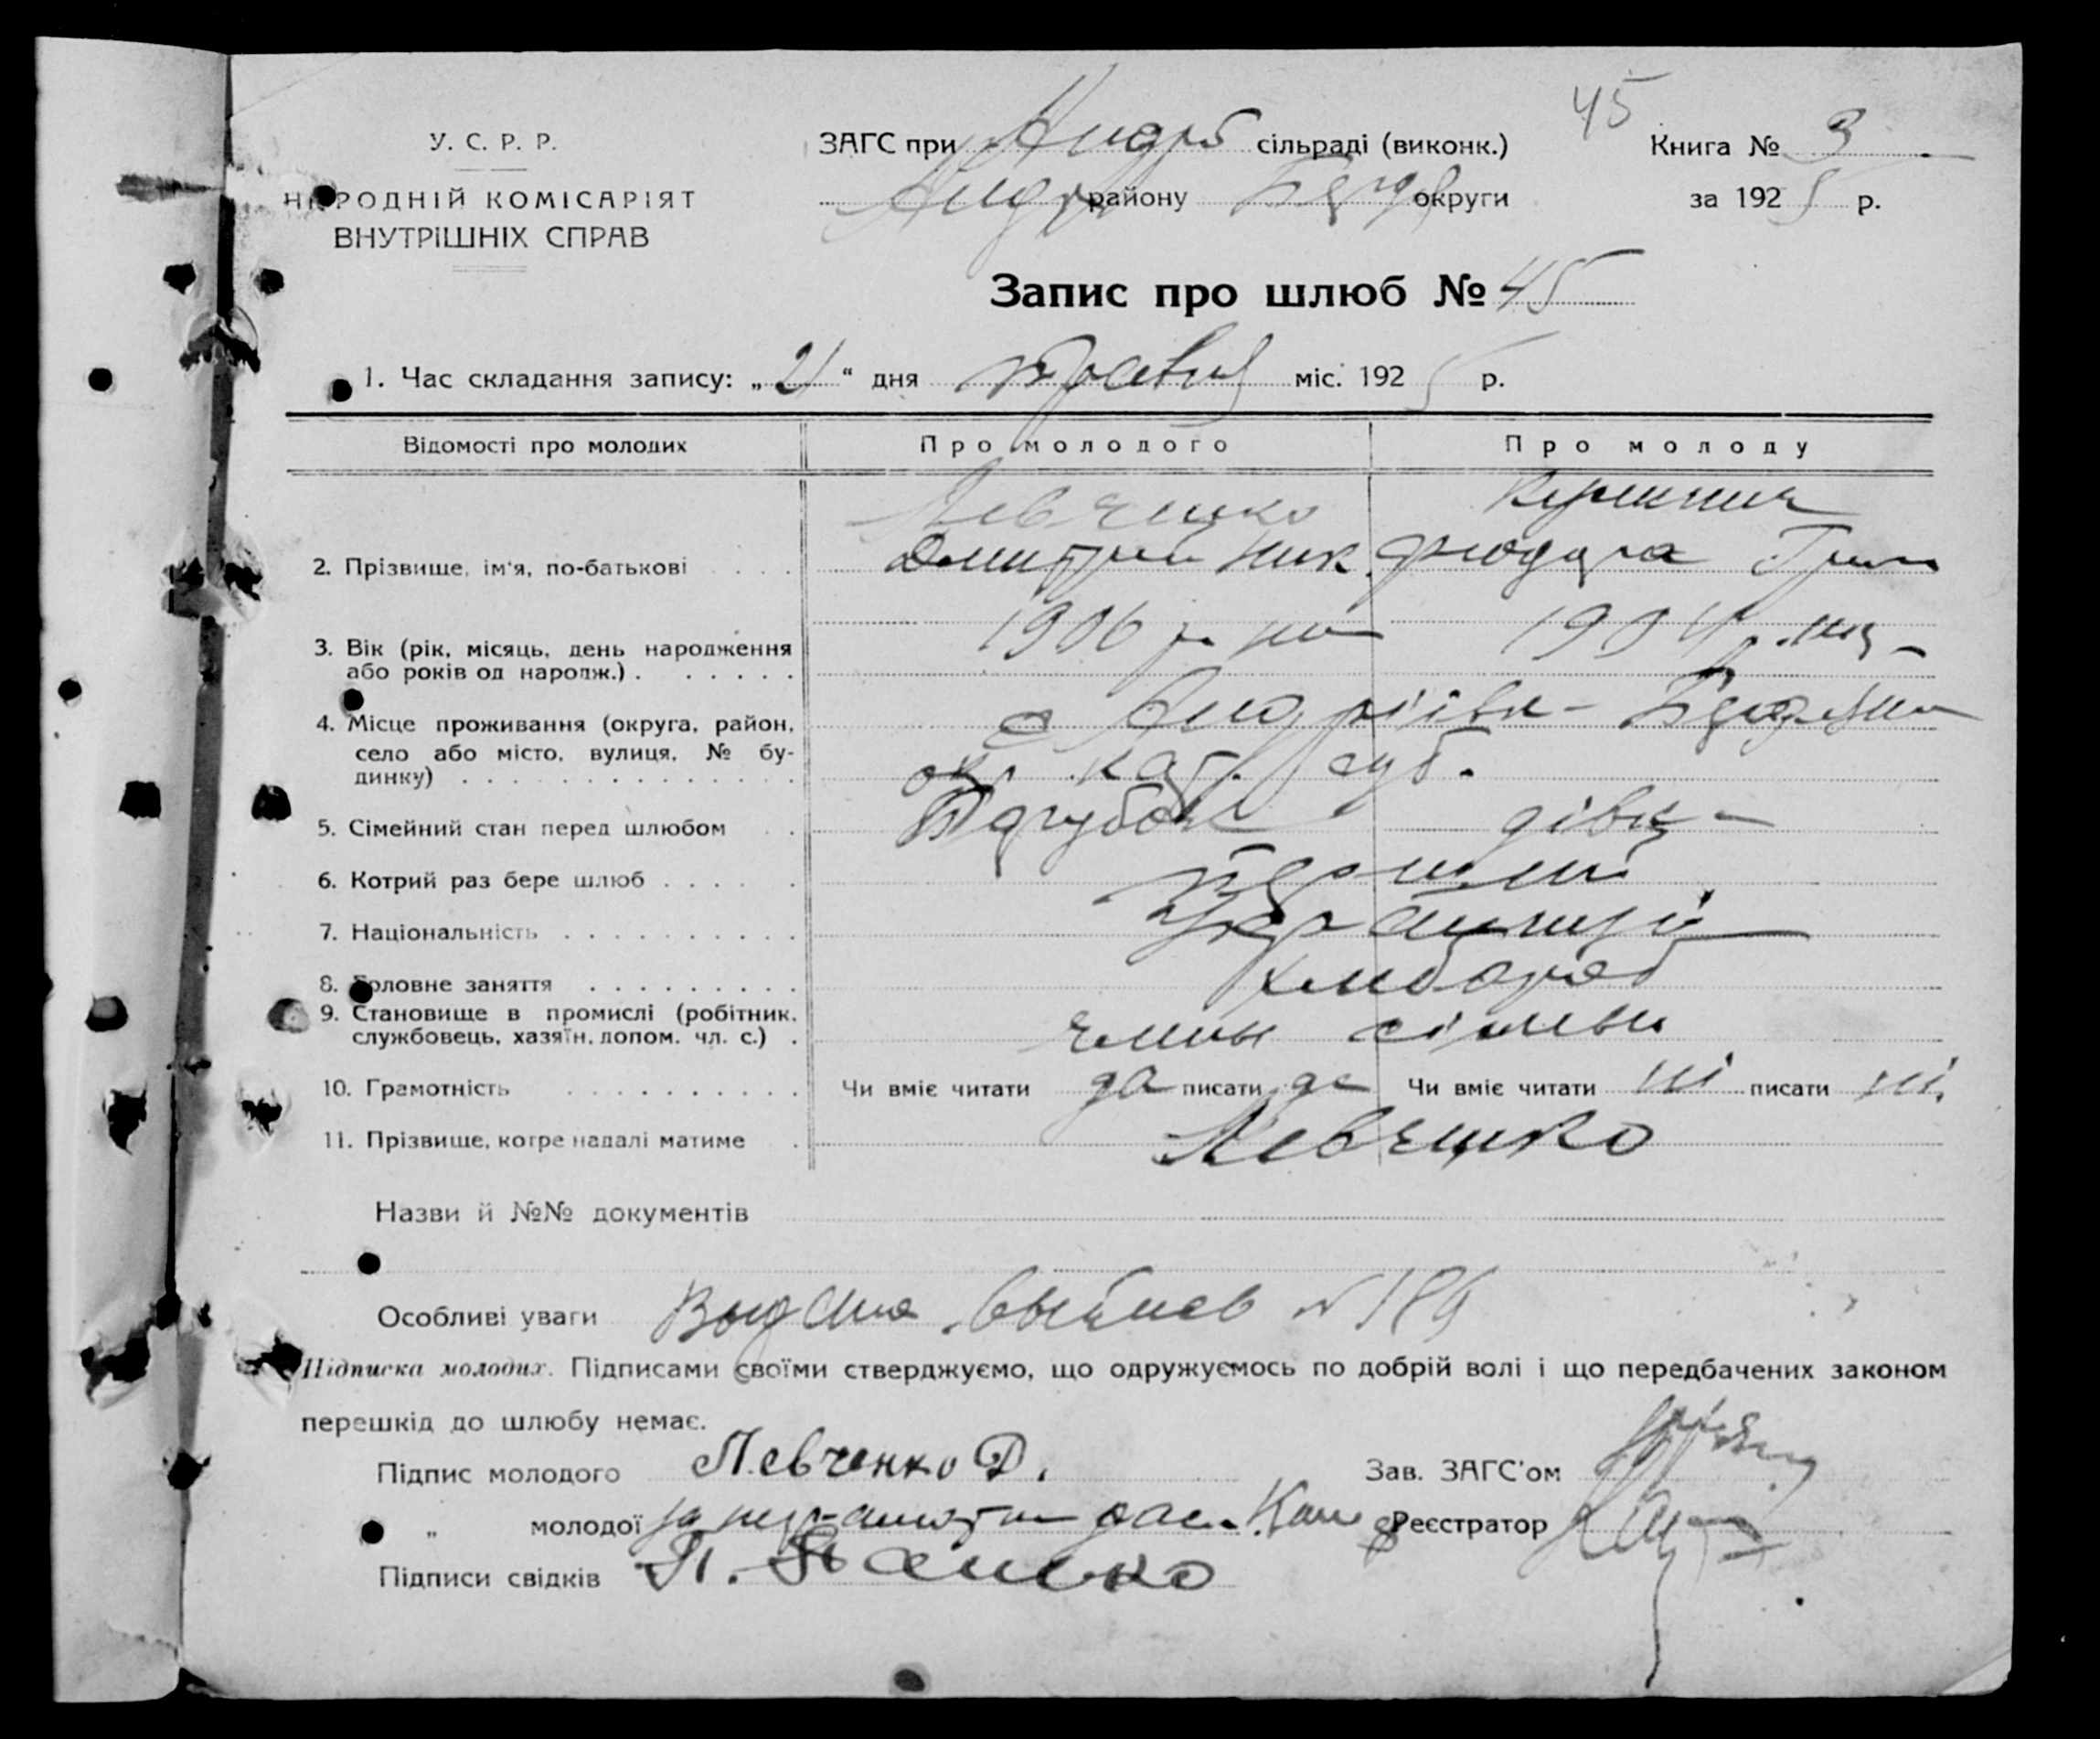 45
У. С. Р. Р.
НАРОДНІЙ КОМІСАРІЯТ
ВНУТРІШНІХ СПРАВ
ЗАГС при Андрів сільраді (виконк.)
Андр району Берд округи
Книга № 3
за 1925 р.
Запис про шлюб № 45
1. Час складання запису: „21“ дня травня міс. 1925 р.
Відомості про молодих Про молодого Про молоду
Левченко
2. Прізвище, ім'я, по-батькові . . . . Дмитрий Ник.
3. Вік (рік, місяць, день народження 1906 р. 1904 р.
або років од народж.) . . . . . .
4. Місце проживання (округа, район, с Андріївк- Бердян
село або місто, вулиця, № бу- окр. Кат. губ.
динку) . . . . . . . . . . . . . .
5. Сімейний стан перед шлюбом . . Парубок дівка
6. Котрий раз бере шлюб . . . . . Перший
7. Національність . . . . . . . . . . Українці
8. Головне заняття . . . . . . . . . хлібороб
9. Становище в промислі (робітник, члены сімьи
службовець, хазяїн, допом. чл. с.) .
10. Грамотність . . . . . . . . . . Чи вміє читати да писати да Чи вміє читати ні писати ні.
11. Прізвище, котре надалі матиме . Левченко
Назви й №№ документів
Особливі уваги Выдана выпись № 189
Підписка молодих. Підписами своїми стверджуємо, що одружуємось по добрій волі і що передбачених законом
перешкід до шлюбу немає.
Підпис молодого Левченко Д.
Зав. ЗАГС'ом
„ молодої за неграмотн рас.
Реєстратор
Підписи свідків П. Панько